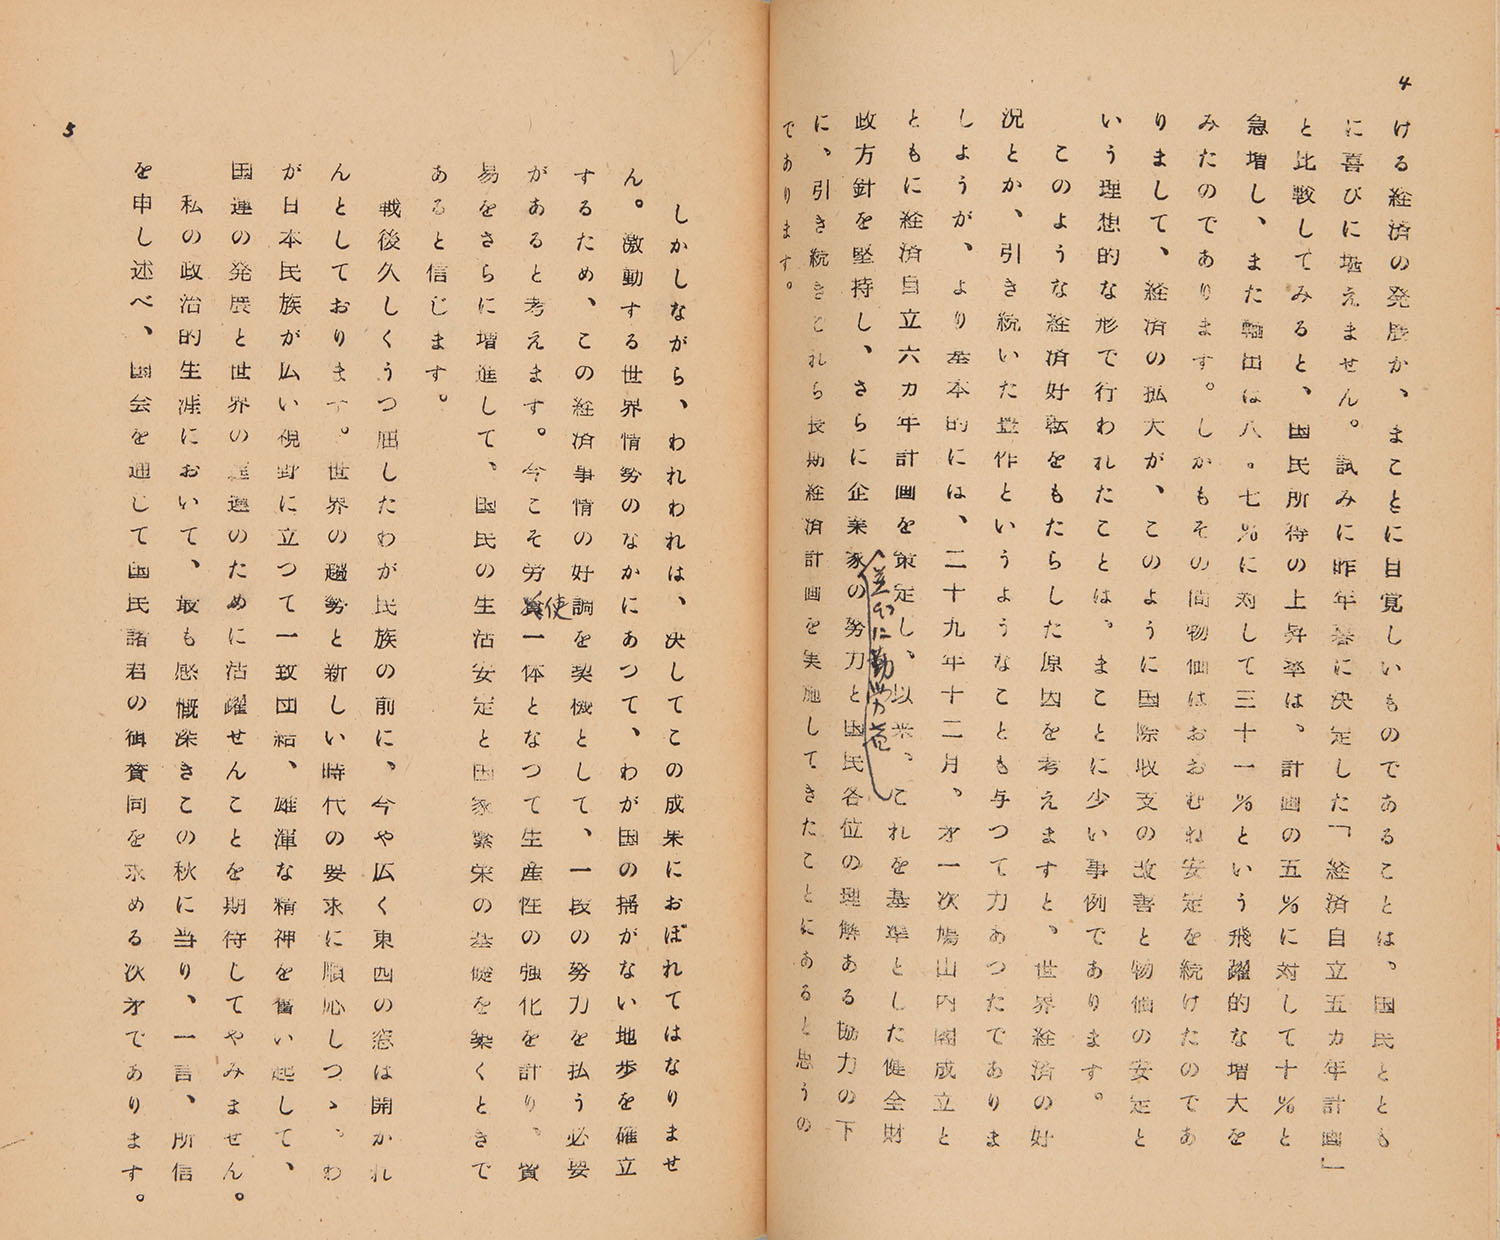 4
ける経済の発展が、まことに目覚しいものであることは、国民ととも
に喜びに堪えません。試みに昨年暮に決定した「経済自立五カ年計画」
と比較してみると、国民所得の上昇率は、計画の五%に対して十%と
急増し、また輸出は八。七%に対して三十一%という飛躍的な増大を
みたのであります。しかもその間物価はおおむね安定を続けたのであ
りまして、経済の拡大が、このように国際収支の改善と物価の安定と
いう理想的な形で行われたことは、まことに少い事例であります。
このような経済好転をもたらした原因を考えますと、世界経済の好
況とか、引き続いた豊作というようなことも与つて力あつたでありま
しようが、より基本的には、二十九年十二月、才一次鳩山内閣成立と
ともに経済自立六カ年計画を策定し、以来、これを基準とした健全財
政方針を堅持し、さらに企業家の努力と国民各位の理解ある協力の下
並びに勤労者
に、引き続きこれら長期経済計画を実施してきたことにあると思うの
であります。
しかしながら、われわれは、決してこの成果におぼれてはなりませ
ん。激動する世界情勢のなかにあつて、わが国の揺がない地歩を確立
するため、この経済事情の好調を契機として、一段の努力を払う必要
があると考えます。今こそ労使一体となつて生産性の強化を計り、貿
易をさらに増進して、国民の生活安定と国家繁栄の基礎を築くときで
あると信じます。
戦後久しくうつ屈したわが民族の前に、今や広く東西の窓は開かれ
んとしております。世界の趨勢と新しい時代の要求に順応しつゝ、わ
が日本民族が広い視野に立つて一致団結、雄渾な精神を奮い起して、
国運の発展と世界の進運のために活躍せんことを期待してやみません。
私の政治的生涯において、最も感慨深きこの秋に当り、一言、所信
を申し述べ、国会を通じて国民諸君の御賛同を求める次才であります。
5